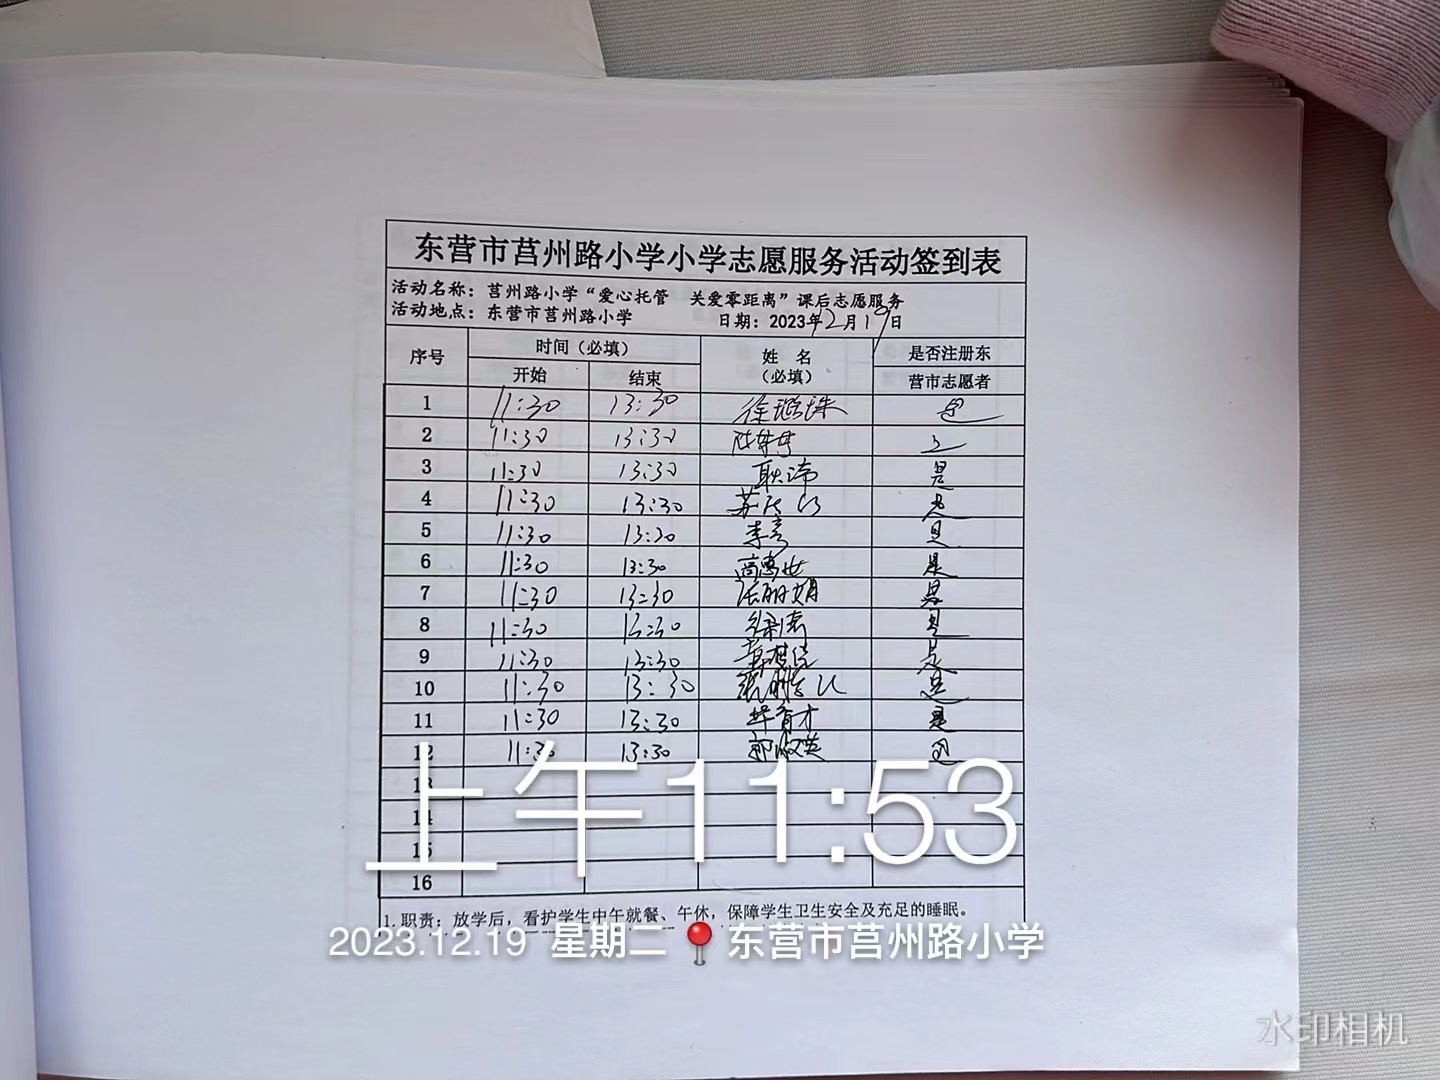 东营市莒州路小学小学志愿服务活动签到表
活动名称：莒州路小学“爱心托管 关爱零距离”课后志愿服务
活动地点：东营市莒州路小学 日期：2023年12月19日
序号 时间（必填） 姓 名（必填） 是否注册东营市志愿者
开始 结束
1 11:30 13:30 徐 珠 是
2 11:30 13:30
3 11:30 13:30 耿涛 是
4 11:30 13:30 苏 是
5 11:30 13:30 李 是
6 11:30 13:30 商惠 是
7 11:30 13:30 张丽娟 是
8 11:30 13:30 徐 是
9 11:30 13:30 是
10 11:30 13:30 张 是
11 11:30 13:30 毕育才 是
12 11:30 13:30 郭淑英 是
13
14
15
16
1.职责：放学后，看护学生中午就餐、午休，保障学生卫生安全及充足的睡眠。
上午11:53
2023.12.19 星期二 东营市莒州路小学
水印相机